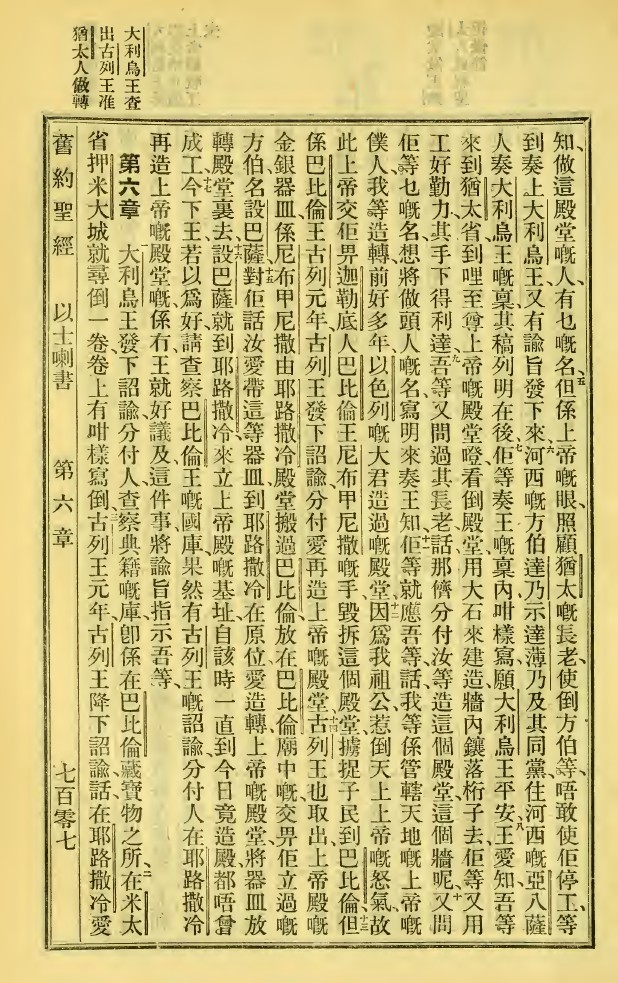 大利烏王查
出古列王准
猶太人做轉
知、做這殿堂嘅人、有乜嘅名、五但係上帝嘅眼、照顧猶太嘅長老、使倒方伯等、唔敢使佢停工、等
到奏上大利烏王、又有諭旨發下來、六河西嘅方伯達乃、示達薄乃、及其同黨住河西嘅亞八薩
人、奏大利烏王嘅稟、其稿列明在後、七佢等奏王嘅稟內、咁樣寫、願大利烏王平安、八王愛知吾等
來到猶太省、到哩至尊上帝嘅殿堂、噔看倒殿堂、用大石來建造、牆內鑲落桁子去、佢等又用
工好勤力、其手下得利達、九吾等又問過其長老、話、那儕分付汝等造這個殿堂、這個牆呢、十又問
佢等乜嘅名、想將做頭人嘅名、寫明來奏王知、十一佢等就應吾等話、我等係管轄天地嘅上帝嘅
僕人、我等造轉前好多年、以色列嘅大君造過嘅殿堂、十二因為我祖公惹倒天上上帝嘅怒氣、故
此上帝交佢畀迦勒底人巴比倫王尼布甲尼撒嘅手、毀拆這個殿堂、擄捉子民到巴比倫、十三但
係巴比倫王古列元年、古列王發下詔諭、分付愛再造上帝嘅殿堂、十四古列王也取出上帝殿嘅
金銀器皿、係尼布甲尼撒由耶路撒冷殿堂搬過巴比倫、放在巴比倫廟中嘅、交畀佢立過嘅
方伯、名設巴薩、十五對佢話、汝愛帶這等器皿到耶路撒冷、在原位愛造轉上帝嘅殿堂、將器皿放
轉殿堂裏去、十六設巴薩就到耶路撒冷來、立上帝殿嘅基址、自該時一直到今日、竟造殿都唔曾
成工、十七今下王若以為好、請查察巴比倫王嘅國庫、果然有古列王嘅詔諭、分付人在耶路撒冷
再造上帝嘅殿堂嘅係冇、王就好議及這件事、將諭旨指示吾等、
第六章 一大利烏王發下詔諭、分付人查察典籍嘅庫、卽係在巴比倫藏寶物之所、二在米太
省押米大城、就尋倒一卷、卷上有咁樣寫倒、三古列王元年、古列王降下詔諭話、在耶路撒冷愛
舊約聖經 以士喇書 第六章 七百零七